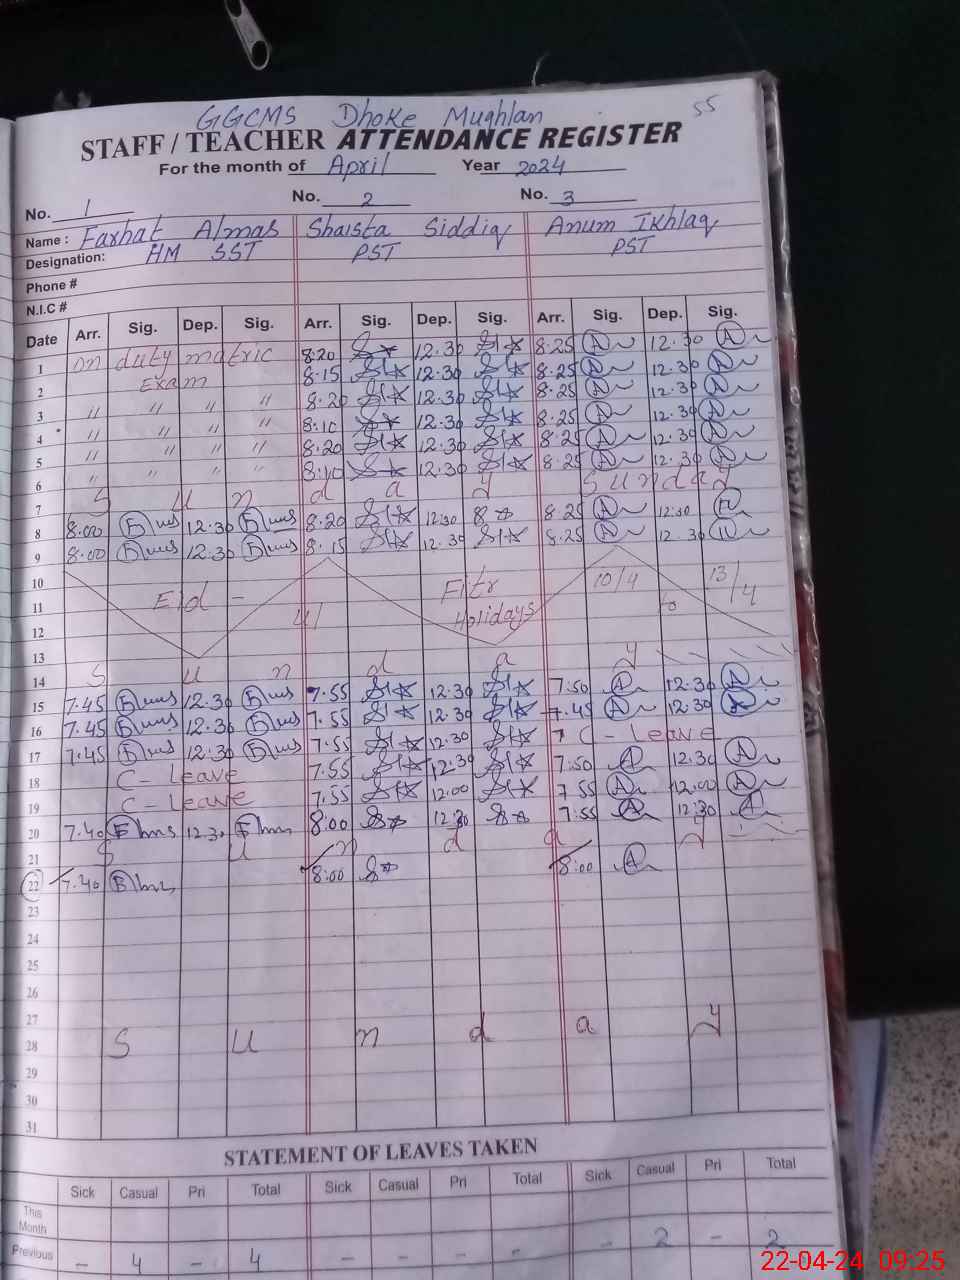 GGCMS Dhoke Mughlan 55
STAFF / TEACHER ATTENDANCE REGISTER
For the month of April Year 2024
No. 1 No. 2 No. 3
Name : Farhat Almas Shaista Siddiq Anum Ikhlaq
Designation: HM SST PST PST
Phone #
N.I.C #
Date Arr. Sig. Dep. Sig. Arr. Sig. Dep. Sig. Arr. Sig. Dep. Sig.
1 On duty matric 8.20 12.30 8.25 12.30
2 Exam 8.15 12.30 8.25 12.30
3 " " " " 8.20 12.30 8.25 12.30
4 " " " " 8.10 12.30 8.25 12.30
5 " " " " 8.20 12.30 8.25 12.30
6 " " " " 8.10 12.30 8.25 12.30
7 S u n d a y Sunday
8 8.00 12.30 8.20 12.30 8.25 12.30
9 8.00 12.30 8.15 12.30 8.25 12.30
10 Eid - ul Fitr 10/4 13/4
11 Holidays to
12
13
14 S u n d a y
15 7.45 12.30 7.55 12.30 7.50 12.30
16 7.45 12.30 7.55 12.30 7.45 12.30
17 7.45 12.30 7.55 12.30 C - Leave
18 C - Leave 7.55 12.30 7.50 12.30
19 C - Leave 7.55 12.00 7.55 12.00
20 7.40 12.30 8.00 12.30 7.55 12.30
21 S u n d a y
22 7.40 8.00 8.00
23
24
25
26
27
28 S u n d a y
29
30
31
STATEMENT OF LEAVES TAKEN
Sick Casual Pri Total Sick Casual Pri Total Sick Casual Pri Total
This Month
Previous - 4 - 4 - - - - - 2 - 2
22-04-24 09:25